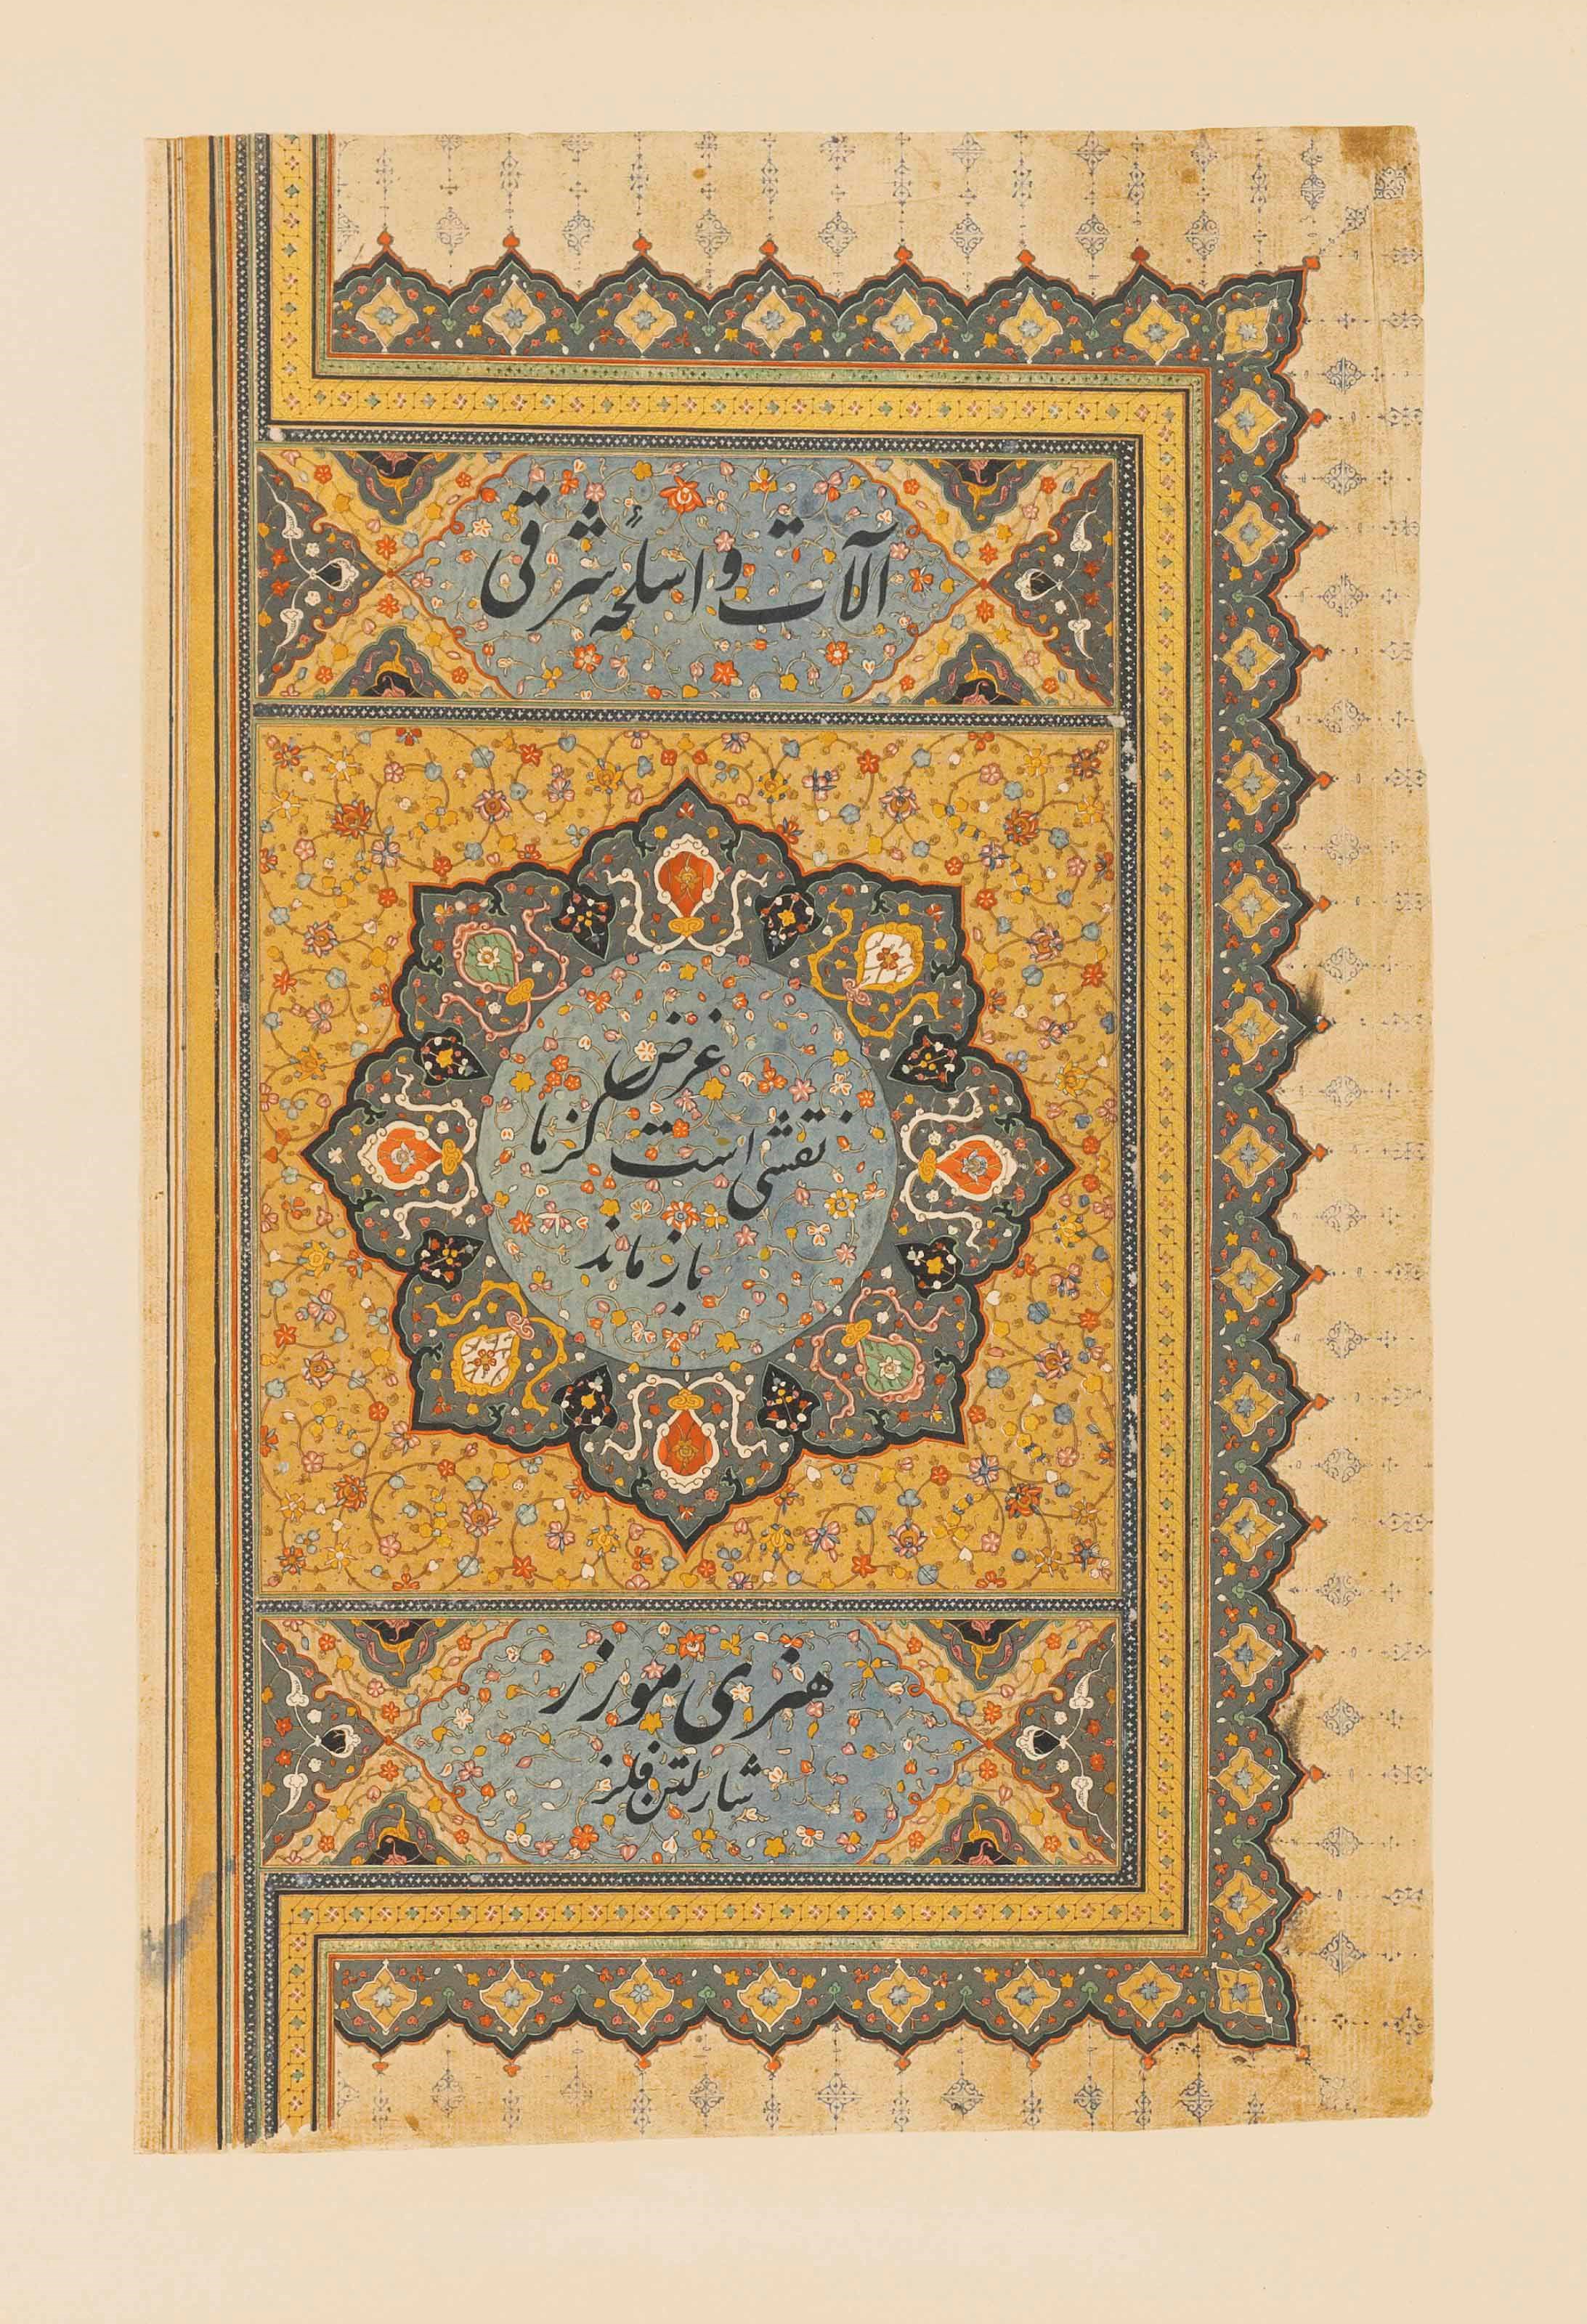 آلات و اسلحهٔ شرقی
غرض
نقشی است کز ما
باز ماند
هنری موزر
شارلتن فلز